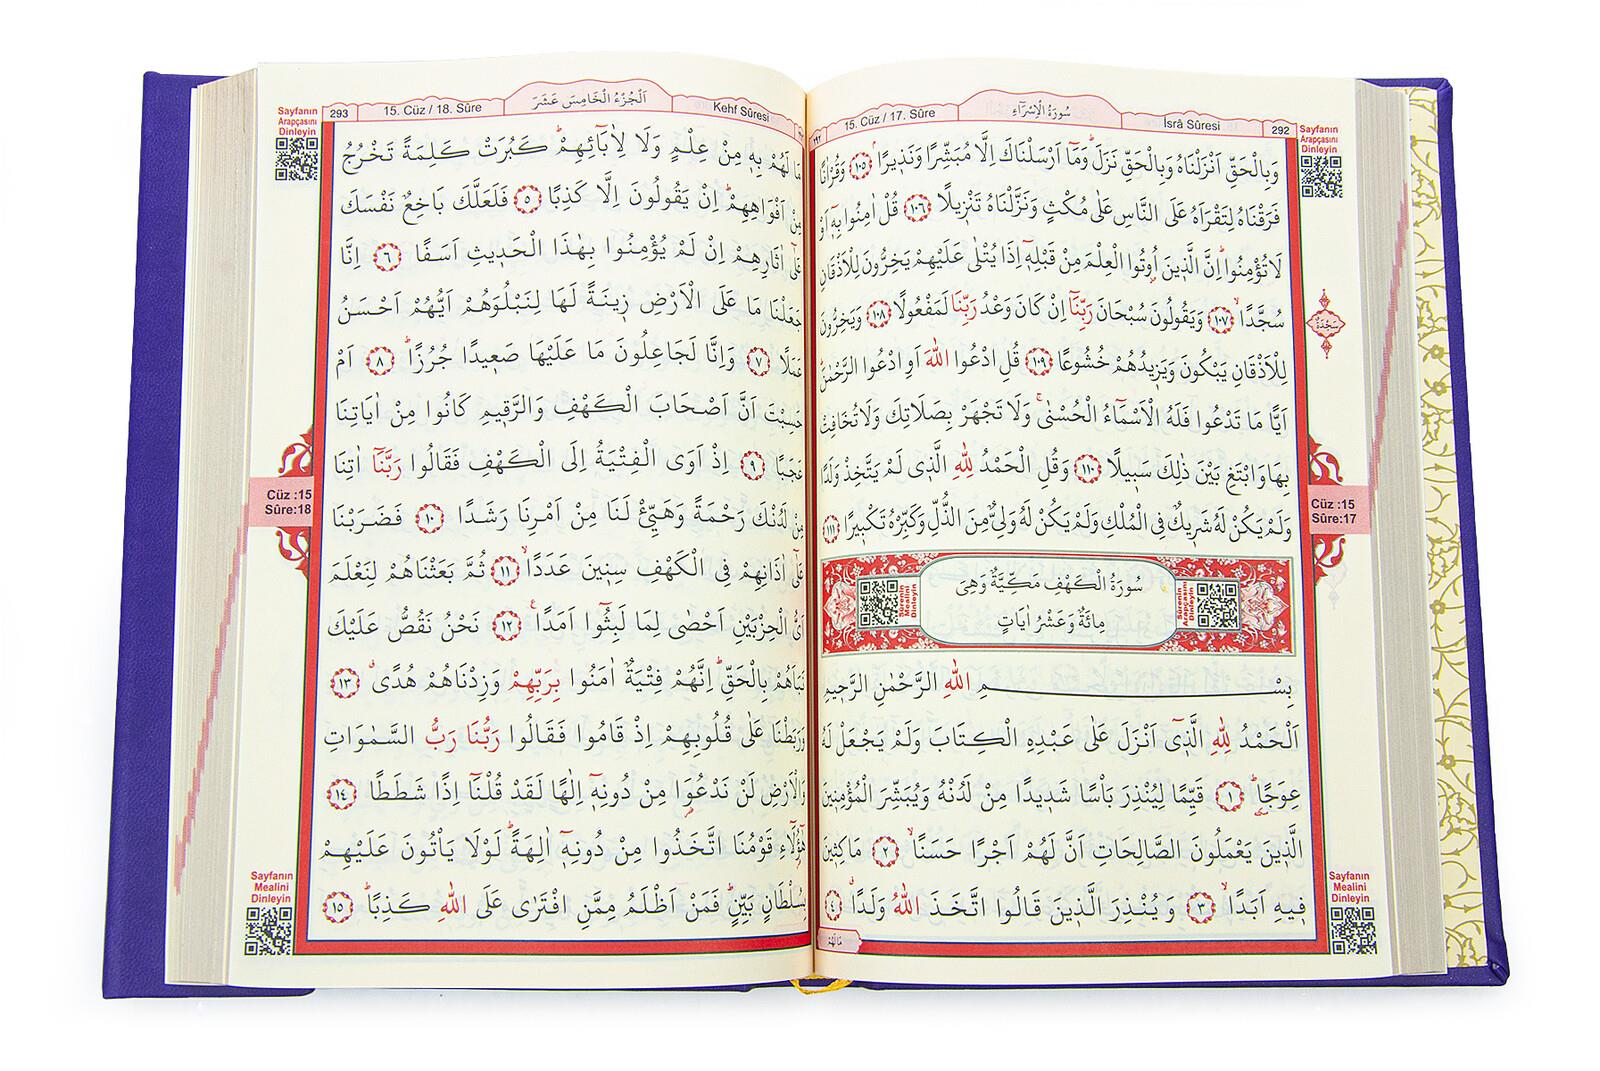 292
İsrâ Sûresi
سُورَةُ الْاِسْرَٓاءِ
15. Cüz / 17. Sûre
Sayfanın
Arapçasını
Dinleyin
وَبِالْحَقِّ اَنْزَلْنَاهُ وَبِالْحَقِّ نَزَلَۜ وَمَٓا اَرْسَلْنَاكَ اِلَّا مُبَشِّرًا وَنَذ۪يرًاۢ ﴿١٠٥﴾ وَقُرْاٰنًا
فَرَقْنَاهُ لِتَقْرَاَهُ عَلَى النَّاسِ عَلٰى مُكْثٍ وَنَزَّلْنَاهُ تَنْز۪يلًا ﴿١٠٦﴾ قُلْ اٰمِنُوا بِه۪ٓ اَوْ
لَا تُؤْمِنُواۜ اِنَّ الَّذ۪ينَ اُو۫تُوا الْعِلْمَ مِنْ قَبْلِه۪ٓ اِذَا يُتْلٰى عَلَيْهِمْ يَخِرُّونَ لِلْاَذْقَانِ
سُجَّدًاۙ ﴿١٠٧﴾ وَيَقُولُونَ سُبْحَانَ رَبِّنَٓا اِنْ كَانَ وَعْدُ رَبِّنَا لَمَفْعُولًا ﴿١٠٨﴾ وَيَخِرُّونَ
سَجْدَةٌ
لِلْاَذْقَانِ يَبْكُونَ وَيَز۪يدُهُمْ خُشُوعًا ﴿١٠٩﴾ قُلِ ادْعُوا اللّٰهَ اَوِ ادْعُوا الرَّحْمٰنَۜ
اَيًّا مَا تَدْعُوا فَلَهُ الْاَسْمَٓاءُ الْحُسْنٰىۚ وَلَا تَجْهَرْ بِصَلَاتِكَ وَلَا تُخَافِتْ
بِهَا وَابْتَغِ بَيْنَ ذٰلِكَ سَب۪يلًا ﴿١١٠﴾ وَقُلِ الْحَمْدُ لِلّٰهِ الَّذ۪ى لَمْ يَتَّخِذْ وَلَدًا
وَلَمْ يَكُنْ لَهُ شَر۪يكٌ فِى الْمُلْكِ وَلَمْ يَكُنْ لَهُ وَلِىٌّ مِنَ الذُّلِّ وَكَبِّرْهُ تَكْب۪يرًا ﴿١١١﴾
Cüz :15
Sûre:17
Sûrenin
Arapçasını
Dinleyin
سُورَةُ الْكَهْفِ مَكِّيَّةٌ وَهِىَ
مِائَةٌ وَعَشْرُ اٰيَاتٍ
Sûrenin
Mealini
Dinleyin
بِسْمِ اللّٰهِ الرَّحْمٰنِ الرَّح۪يمِ
اَلْحَمْدُ لِلّٰهِ الَّذ۪ٓى اَنْزَلَ عَلٰى عَبْدِهِ الْكِتَابَ وَلَمْ يَجْعَلْ لَهُ
عِوَجًاۜ ﴿١﴾ قَيِّمًا لِيُنْذِرَ بَاْسًا شَد۪يدًا مِنْ لَدُنْهُ وَيُبَشِّرَ الْمُؤْمِن۪ينَ
الَّذ۪ينَ يَعْمَلُونَ الصَّالِحَاتِ اَنَّ لَهُمْ اَجْرًا حَسَنًاۙ ﴿٢﴾ مَاكِث۪ينَ
ف۪يهِ اَبَدًاۙ ﴿٣﴾ وَيُنْذِرَ الَّذ۪ينَ قَالُوا اتَّخَذَ اللّٰهُ وَلَدًاۗ ﴿٤﴾
مَا لَهُمْ
Sayfanın
Mealini
Dinleyin
Kehf Sûresi
اَلْجُزْءُ الْخَامِسَ عَشَرَ
15. Cüz / 18. Sûre
293
Sayfanın
Arapçasını
Dinleyin
مَا لَهُمْ بِه۪ مِنْ عِلْمٍ وَلَا لِاٰبَٓائِهِمْۜ كَبُرَتْ كَلِمَةً تَخْرُجُ
مِنْ اَفْوَاهِهِمْۜ اِنْ يَقُولُونَ اِلَّا كَذِبًا ﴿٥﴾ فَلَعَلَّكَ بَاخِعٌ نَفْسَكَ
عَلٰٓى اٰثَارِهِمْ اِنْ لَمْ يُؤْمِنُوا بِهٰذَا الْحَد۪يثِ اَسَفًا ﴿٦﴾ اِنَّا
جَعَلْنَا مَا عَلَى الْاَرْضِ ز۪ينَةً لَهَا لِنَبْلُوَهُمْ اَيُّهُمْ اَحْسَنُ
عَمَلًا ﴿٧﴾ وَاِنَّا لَجَاعِلُونَ مَا عَلَيْهَا صَع۪يدًا جُرُزًاۜ ﴿٨﴾ اَمْ
حَسِبْتَ اَنَّ اَصْحَابَ الْكَهْفِ وَالرَّق۪يمِ كَانُوا مِنْ اٰيَاتِنَا
عَجَبًا ﴿٩﴾ اِذْ اَوَى الْفِتْيَةُ اِلَى الْكَهْفِ فَقَالُوا رَبَّنَٓا اٰتِنَا
مِنْ لَدُنْكَ رَحْمَةً وَهَيِّئْ لَنَا مِنْ اَمْرِنَا رَشَدًا ﴿١٠﴾ فَضَرَبْنَا
عَلٰٓى اٰذَانِهِمْ فِى الْكَهْفِ سِن۪ينَ عَدَدًاۙ ﴿١١﴾ ثُمَّ بَعَثْنَاهُمْ لِنَعْلَمَ
اَىُّ الْحِزْبَيْنِ اَحْصٰى لِمَا لَبِثُٓوا اَمَدًا۟ ﴿١٢﴾ نَحْنُ نَقُصُّ عَلَيْكَ
نَبَاَهُمْ بِالْحَقِّۜ اِنَّهُمْ فِتْيَةٌ اٰمَنُوا بِرَبِّهِمْ وَزِدْنَاهُمْ هُدًىۗ ﴿١٣﴾
وَرَبَطْنَا عَلٰى قُلُوبِهِمْ اِذْ قَامُوا فَقَالُوا رَبُّنَا رَبُّ السَّمٰوَاتِ
وَالْاَرْضِ لَنْ نَدْعُوَ۬ا مِنْ دُونِه۪ٓ اِلٰهًا لَقَدْ قُلْنَٓا اِذًا شَطَطًا ﴿١٤﴾
هٰٓؤُ۬لَٓاءِ قَوْمُنَا اتَّخَذُوا مِنْ دُونِه۪ٓ اٰلِهَةًۜ لَوْلَا يَاْتُونَ عَلَيْهِمْ
بِسُلْطَانٍ بَيِّنٍۜ فَمَنْ اَظْلَمُ مِمَّنِ افْتَرٰى عَلَى اللّٰهِ كَذِبًاۜ ﴿١٥﴾
Cüz :15
Sûre:18
Sayfanın
Mealini
Dinleyin